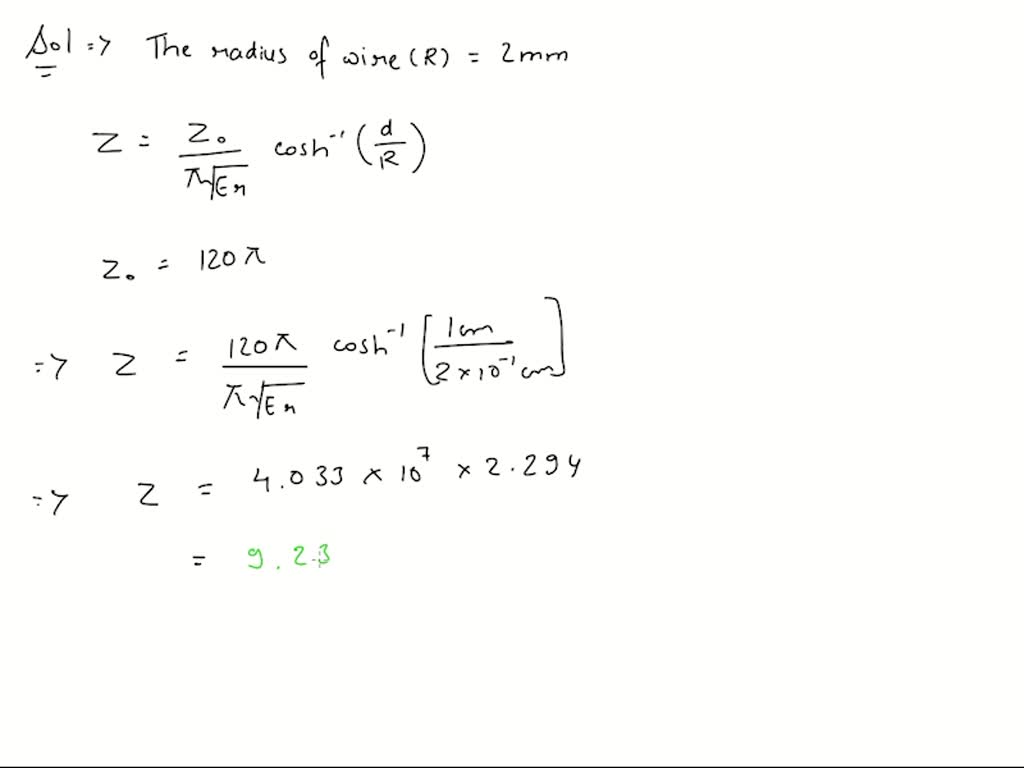 Sol => The radius of wire (R) = 2mm
Z = Z₀ / π√Er cosh⁻¹ (d/R)
Z₀ = 120π
=> Z = 120π / π√Er cosh⁻¹ [1cm / 2×10⁻¹cm]
=> Z = 4.033 × 10⁷ × 2.294
= 9.23